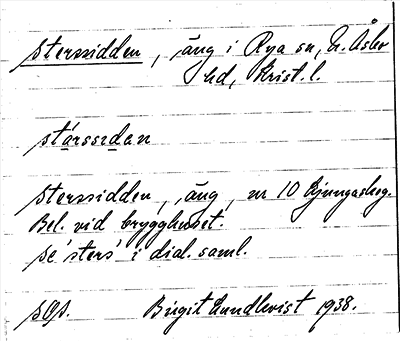 stersidden, äng i Rya sn, N. Åsbo
hd, Krist. l.
stärssidan
stersidden, äng, nr 10 Ljungaskog.
Bel. vid brygghuset.
se 'sters' i dial. saml.
Birgit Lundkvist 1938.